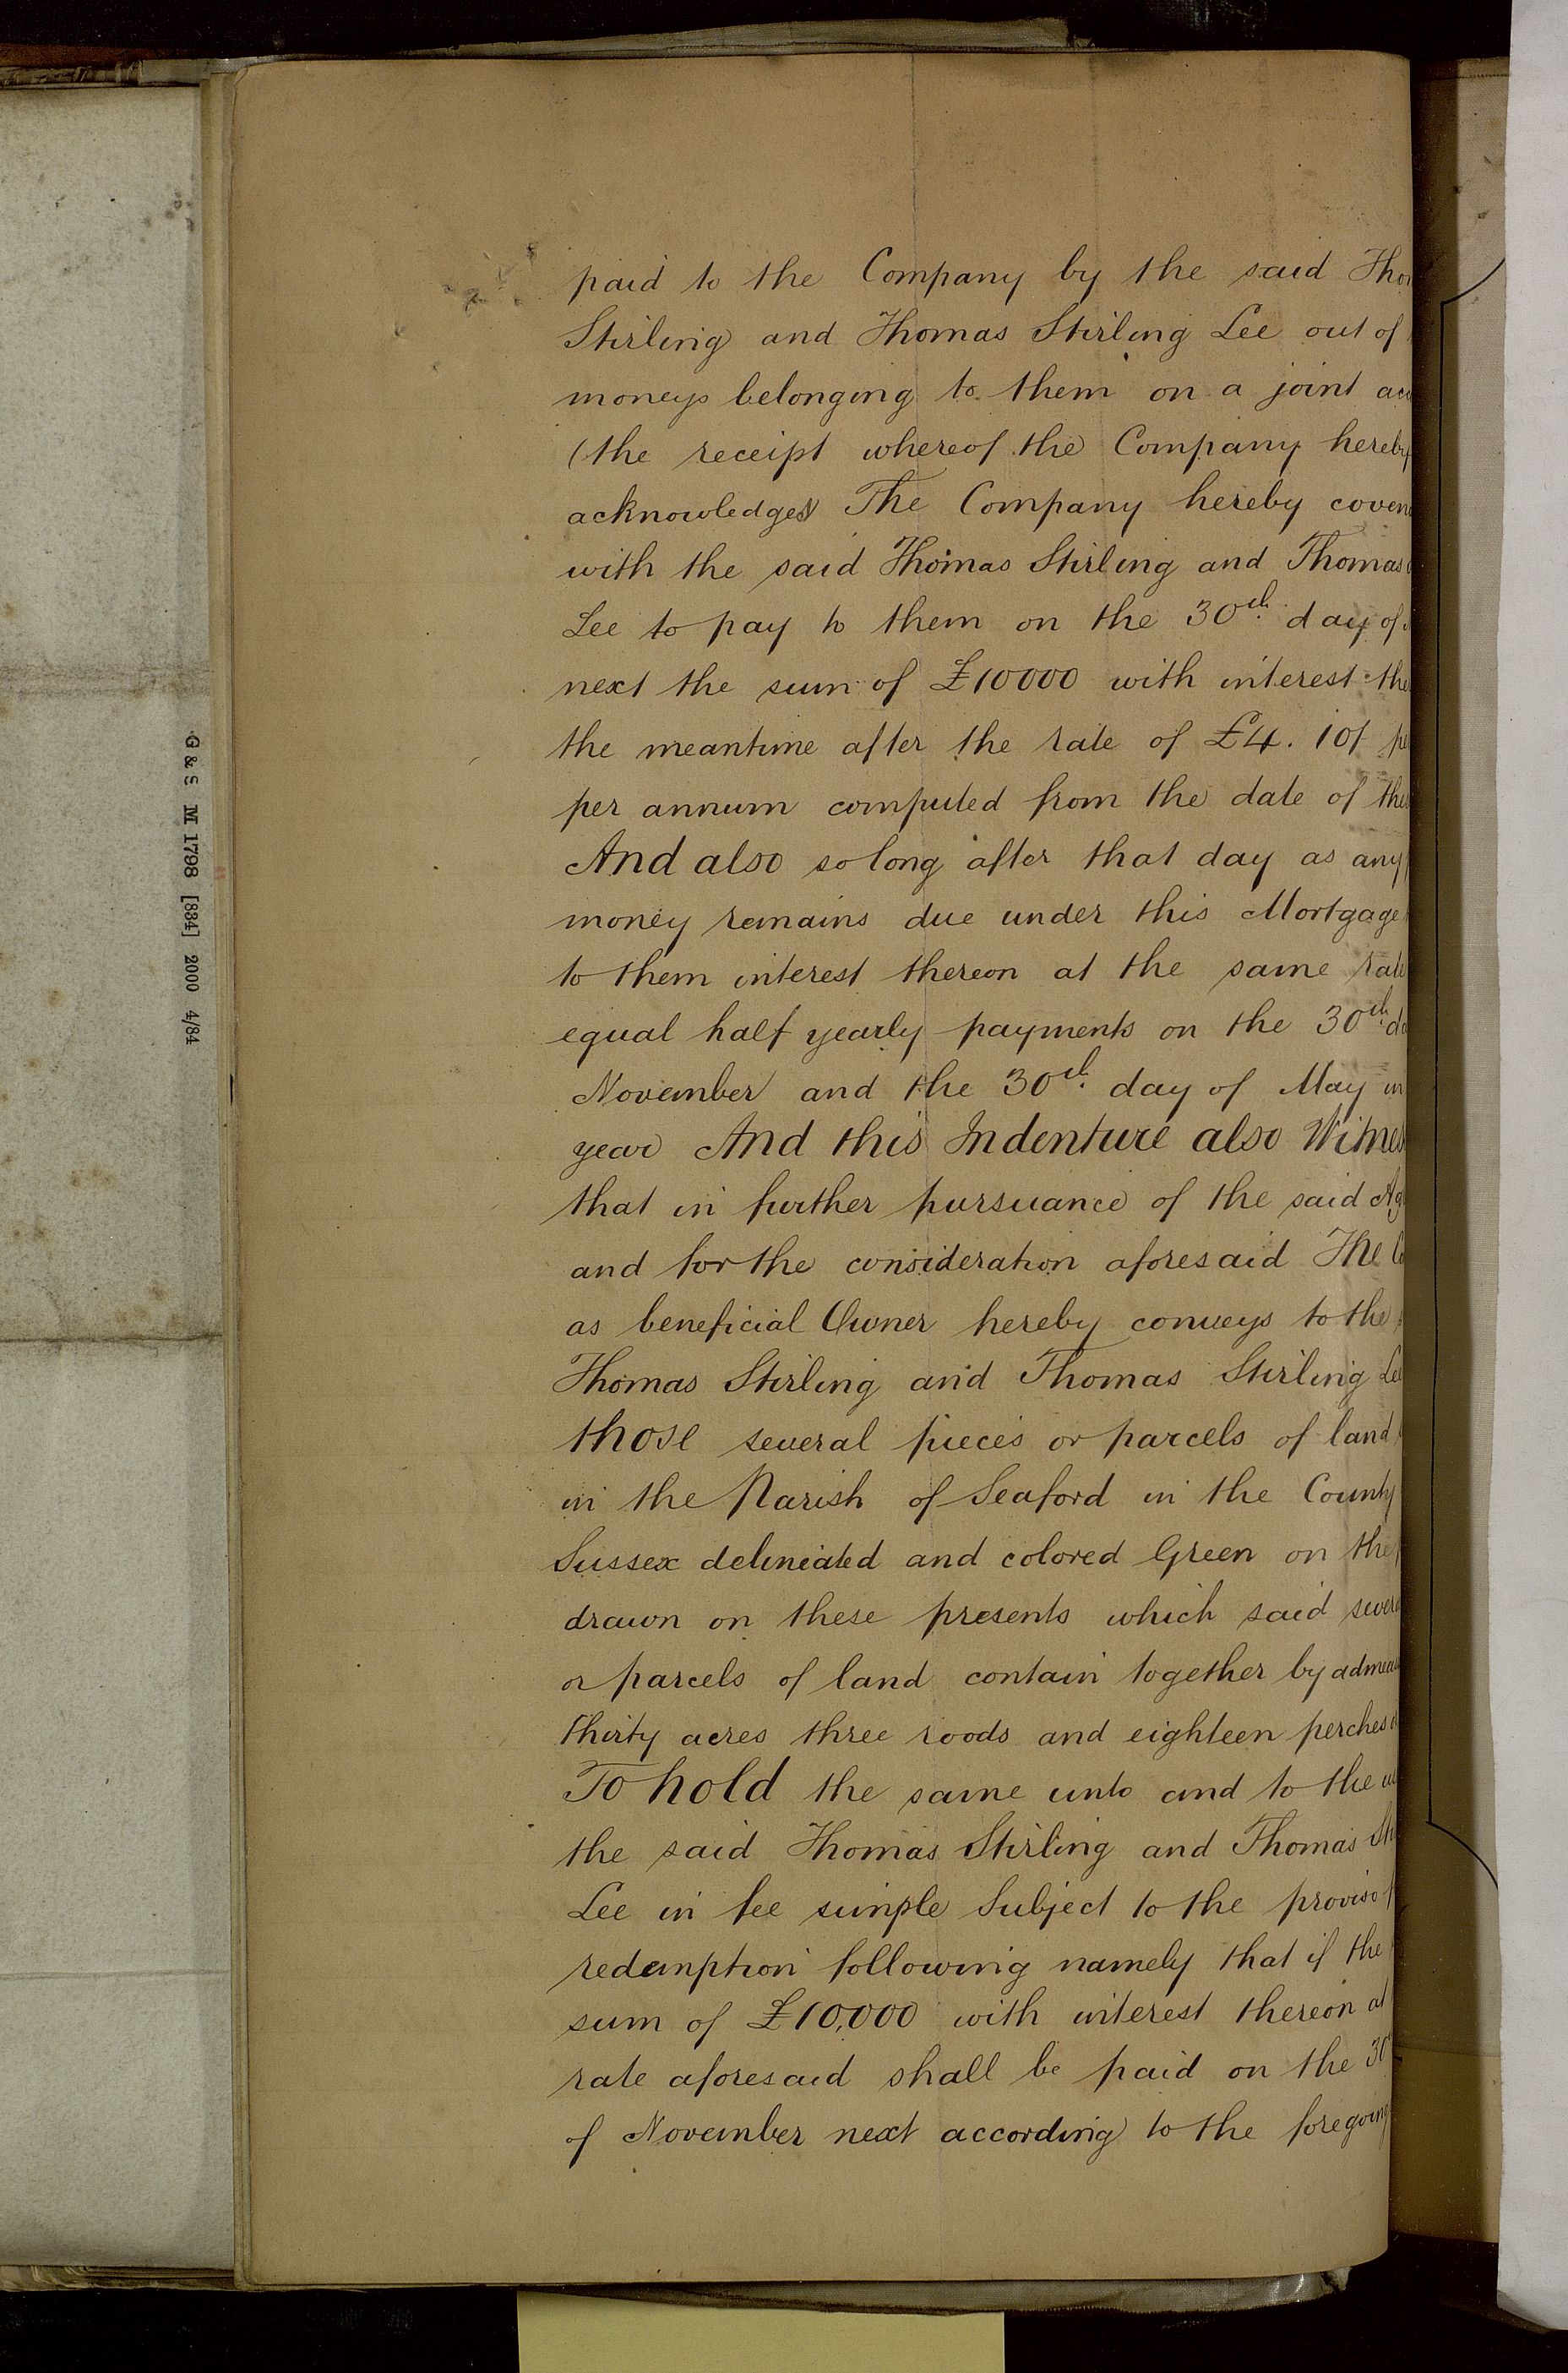 paid to the Company by the said Tho
Stirling and Thomas Stirling Lee out of
moneys belonging to them on a joint ac
(the receipt whereof the Company hereby
acknowledges) The Company hereby coven
with the said Thomas Stirling and Thomas
Lee to pay to them on the 30th day of
next the sum of £10000 with interest the
the meantime after the rate of £4. 10/ pe
per annum computed from the date of the
And also so long after that day as any
money remains due under this Mortgage
to them interest thereon at the same rate
equal half yearly payments on the 30th da
November and the 30th day of May in
year And this Indenture also Witnes
that in further pursuance of the said Ag
and for the consideration aforesaid The Co
as beneficial Owner hereby conveys to the
Thomas Stirling and Thomas Stirling Lee
those several pieces or parcels of land
in the Parish of Seaford in the County
Sussex delineated and colored Green on the
drawn on these presents which said severa
or parcels of land contain together by admea
thirty acres three roods and eighteen perches
To hold the same unto and to the u
the said Thomas Stirling and Thomas Sti
Lee in fee simple Subject to the proviso f
redemption following namely that if the
sum of £10,000 with interest thereon at
rate aforesaid shall be paid on the 30
of November next according to the foregoing
G & S M 1798 [884] 2000 4/84